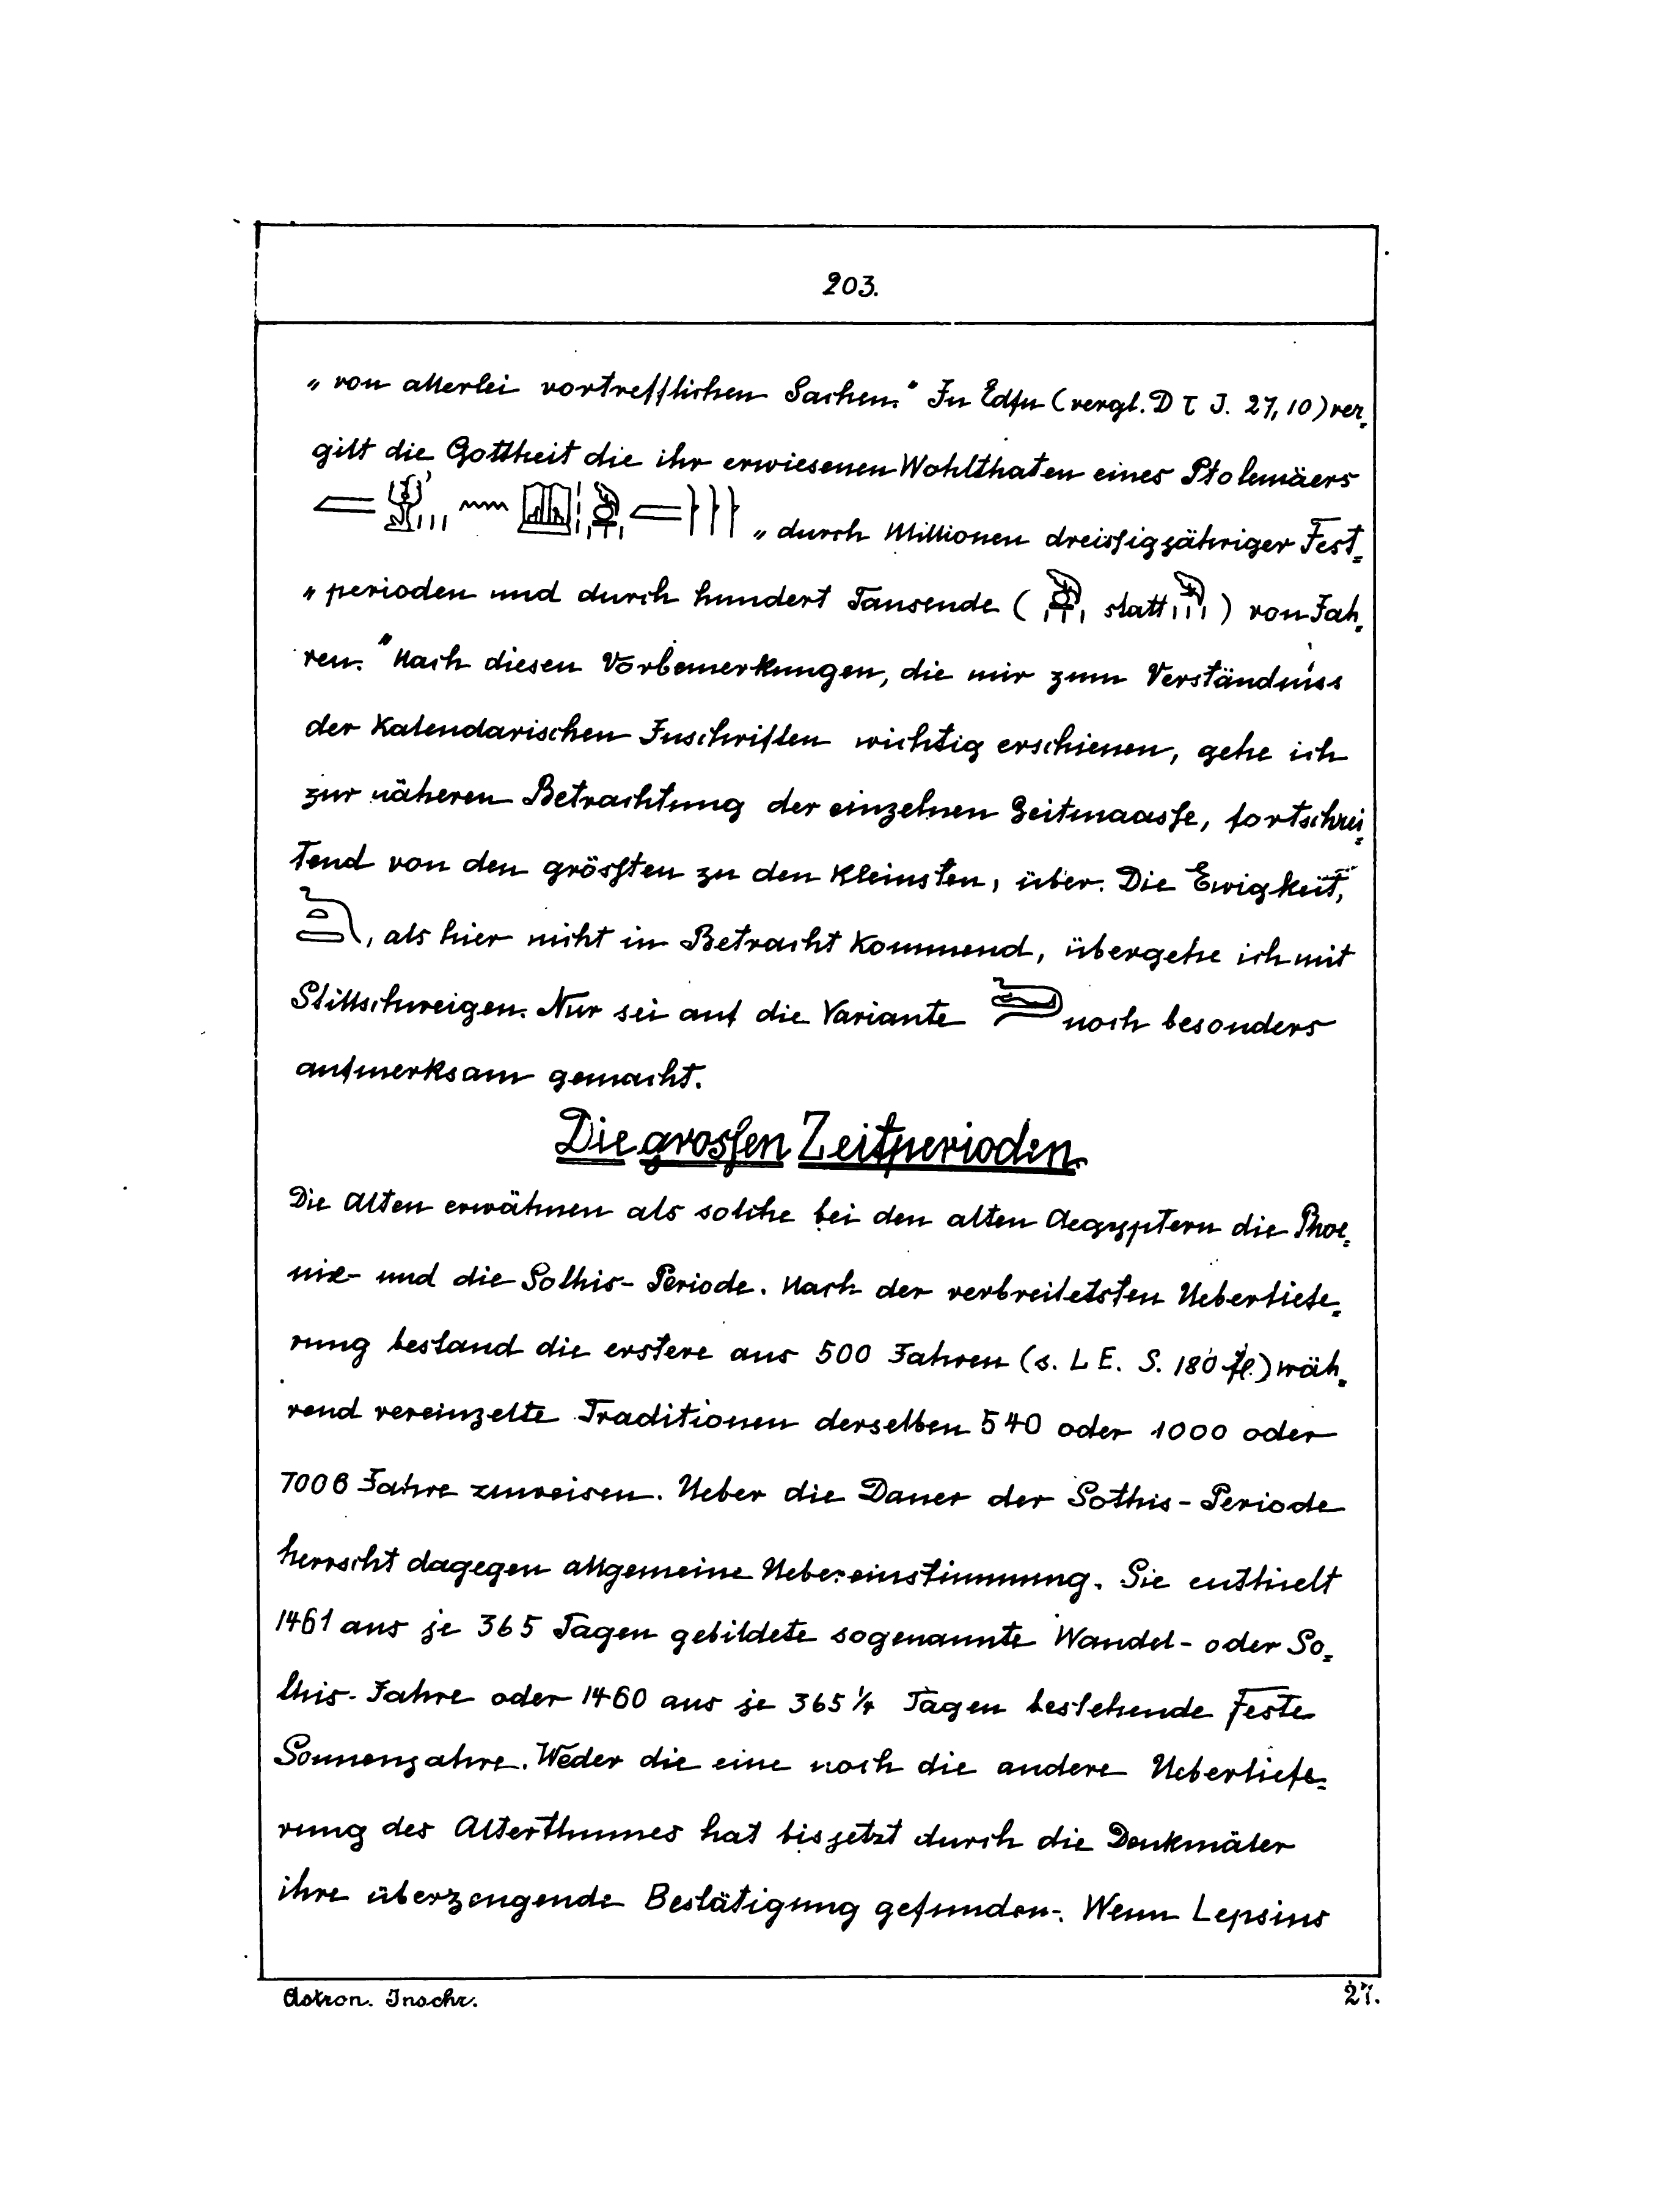 203.
„von allerlei vortrefflichen Sachen.“ In Edfu (vergl. D T J. 27, 10) ver=
gilt die Gottheit die ihr erwiesenen Wohlthaten eines Ptolemäers
„durch Millionen dreissigjähriger Fest=
„perioden und durch hundert Tausende ( statt ) von Jah=
ren.“ Nach diesen Vorbemerkungen, die mir zum Verständniss
der Kalendarischen Inschriften wichtig erschienen, gehe ich
zur näheren Betrachtung der einzelnen Zeitmaasse, fortschrei=
tend von den grössten zu den Kleinsten, über. Die Ewigkeit,
, als hier nicht in Betracht Kommend, übergehe ich mit
Stillschweigen. Nur sei auf die Variante noch besonders
aufmerksam gemacht.
Die grossen Zeitperioden.
Die Alten erwähnen als solche bei den alten Aegyptern die Phoe=
nix- und die Sothis-Periode. Nach der verbreitetsten Ueberliefe=
rung bestand die erstere aus 500 Jahren (s. L E. S. 180 fl.) wäh=
rend vereinzelte Traditionen derselben 540 oder 1000 oder
7006 Jahre zuweisen. Ueber die Dauer der Sothis-Periode
herrscht dagegen allgemeine Uebereinstimmung. Sie enthielt
1461 aus je 365 Tagen gebildete sogenannte Wandel- oder So=
this-Jahre oder 1460 aus je 365 1/4 Tagen bestehende Feste
Sonnenjahre. Weder die eine noch die andere Ueberliefe=
rung des Alterthumes hat bis jetzt durch die Denkmäler
ihre überzeugende Bestätigung gefunden. Wenn Lepsius
Astron. Inschr. 27.